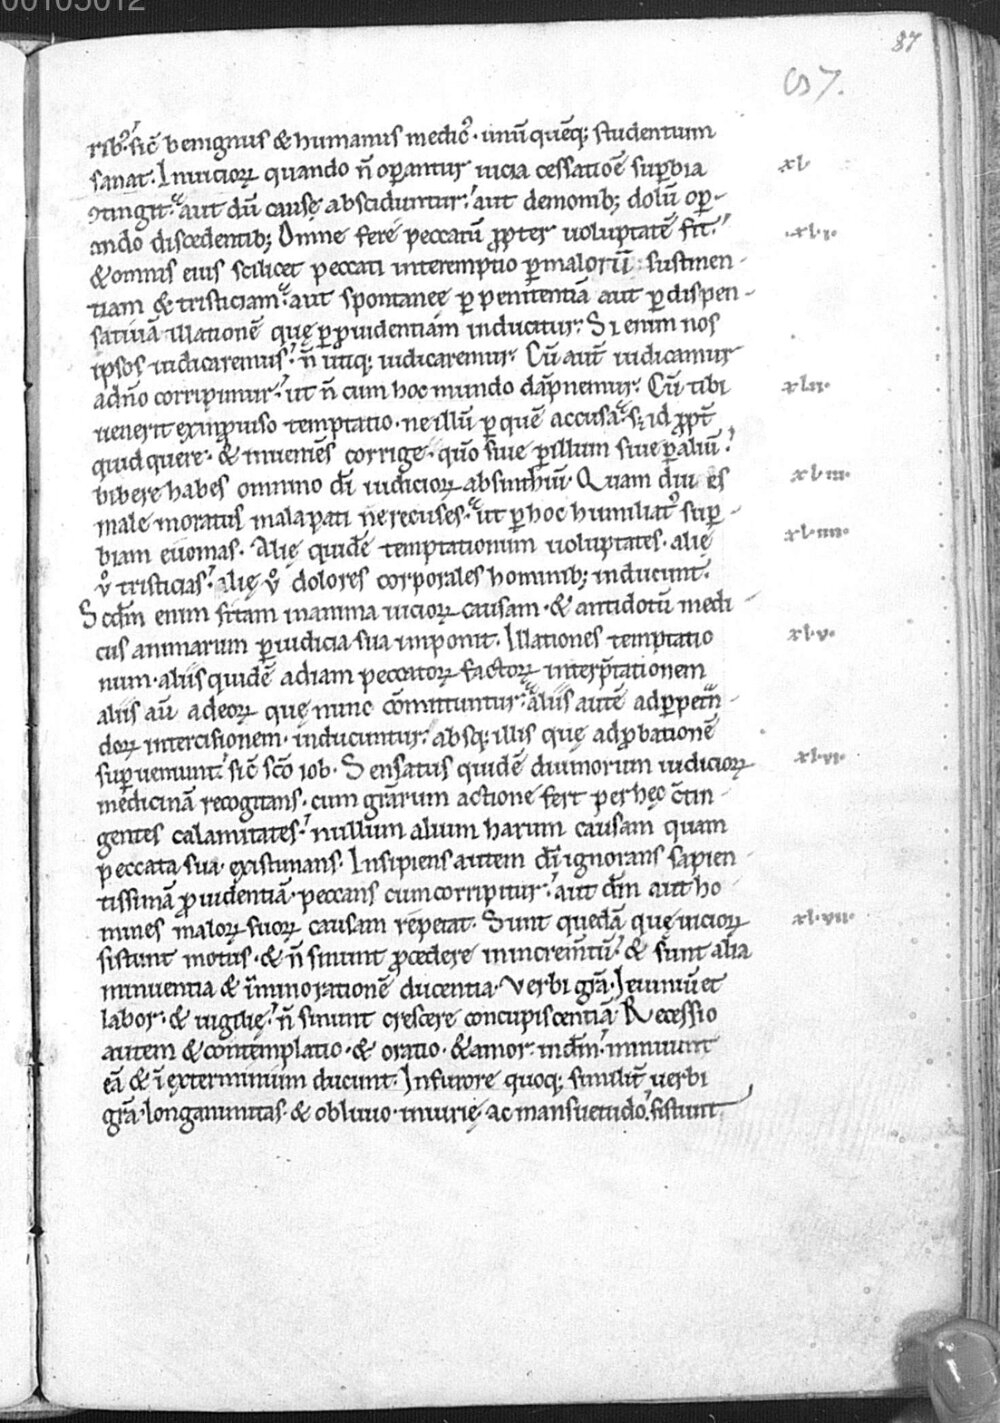 00105012
87
57.
rib᷒. sic̄ benignus & humanus medic᷒. unū quēq; studentum
sanat. Inuicioꝝ quando n̄ oꝑantur uicia cessatiōē suꝑbia xl
ꝯtingit. aut dū causę absciduntur. aut demonib; dolū oꝑ-
ando discedentib; Omne fere peccatū ꝓpter uoluptatē fit. .xl.i.
& omnis eius scilicet peccati interemptio ꝑ malorū sustinen-
tiam & tristiciam. aut spontanee ꝑ penitentiā aut ꝑ dispen-
satiuā illationē quę ꝑ ꝓuidentiam inducitur. Si enim nos
ipsos iudicaremus. n̄ utiq; iudicaremur. Cū aut̄ iudicamur
a dn̄o corripimur. ut n̄ cum hoc mundo dāpnemur. Cū tibi xl.ii.
uenerit ex inꝓuiso temptatio. ne illū ꝑ quē accusa. sꝫ id ꝓpt̄
quid quere. & inuenies corrige. quō siue ꝑ illum siue ꝑ aliū.
bibere habes omnino dī iudicioꝝ absinthiū. Quam diu es xl.iii.
male moratus mala pati ne recuses. ut ꝑ hoc humiliat᷒ suꝑ-
biam euomas. Alię quidē temptationum uoluptates. alię xl.iiii.
ů tristicias. alię ů dolores corporales hominib; inducunt.
Scdm̄ enim sitam in anima uicioꝝ causam. & antidotū medi-
cus animarum ꝑ iudicia sua imponit. Illationes temptatio xl.v.
num. aliis quidē ad iam peccatoꝝ factoꝝ interp̄tationem
aliis aū ad eoꝝ quę nunc cōmittuntur. aliis autē ad ꝑpetn̄-
doꝝ intercisionem. inducuntur. absq; illis quę ad ꝓbationē
suꝑueniunt. sic̄ sc̄o iob. Sensatus quidē diuinorum iudicioꝝ xl.vi.
medicinā recogitans. cum grārum actione fert per hęc c̄tin-
gentes calamitates. nullum alium harum causam quam
peccata sua existimans. Insipiens autem dī ignorans sapien-
tissimā ꝓuidentiā. peccans cum corripitur. aut dm̄ aut ho-
mines maloꝝ suoꝝ causam reperat. Sunt quedā quę uicioꝝ xl.vii.
sistunt motus. & n̄ sinunt ꝓcedere in incrēmtū. & sunt alia
minuentia & ī minorationē ducentia. Verbi grā. Ieiuniū et
labor. & uigilię. n̄ sinunt crescere concupiscentiā. Recessio
autem & contemplatio. & oratio. & amor. in dm̄. minuunt
eā & ī exterminium ducunt. In furore quoq; similit̄ uerbi
grā. longanimitas. & obliuio. iniurię. ac mansuetudo. sistunt